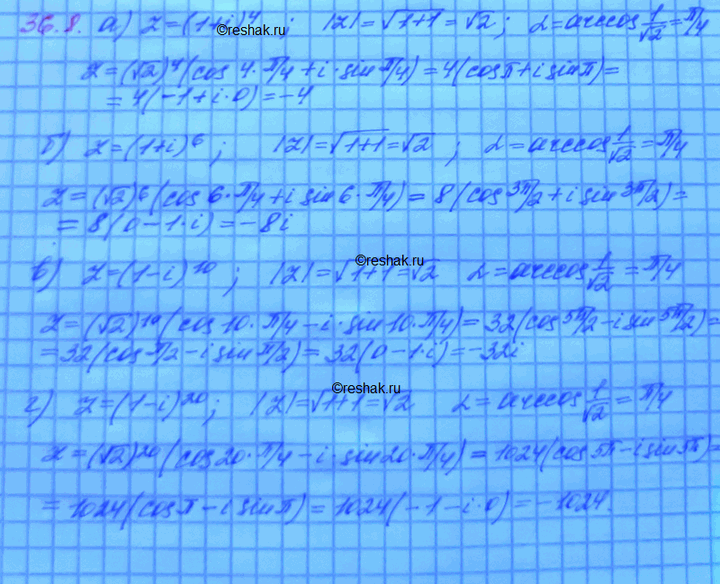 36.8. а) z=(1+i)^4 ; |z|=√1+1=√2; α=arccos 1/√2=π/4
©reshak.ru
z=(√2)^4(cos 4·π/4+i·sin π/4)=4(cosπ+i sinπ)=
=4(-1+i·0)=-4
б) z=(1+i)^6; |z|=√1+1=√2 ; α=arccos 1/√2=π/4
z=(√2)^6(cos 6·π/4+i sin 6·π/4)=8(cos 3π/2+i sin 3π/2)=
=8(0-1·i)=-8i
©reshak.ru
в) z=(1-i)^10 ; |z|=√1+1=√2 α=arccos 1/√2=π/4
z=(√2)^10(cos 10·π/4-i·sin 10·π/4)=32(cos 5π/2-i sin 5π/2)=
=32(cos π/2-i sin π/2)=32(0-1·i)=-32i
©reshak.ru
г) z=(1-i)^20; |z|=√1+1=√2 α=arccos 1/√2=π/4
z=(√2)^20(cos 20·π/4-i·sin 20·π/4)=1024(cos 5π-i sin 5π)=
=1024(cosπ-i sinπ)=1024(-1-i·0)=-1024.